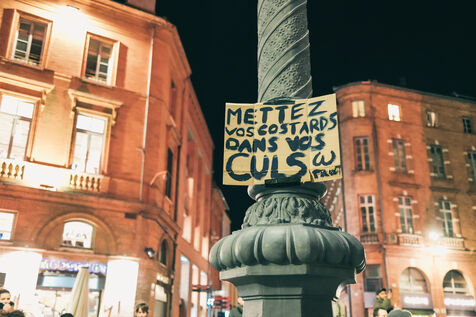 METTEZ
VOS COSTARDS
DANS VOS
CULS